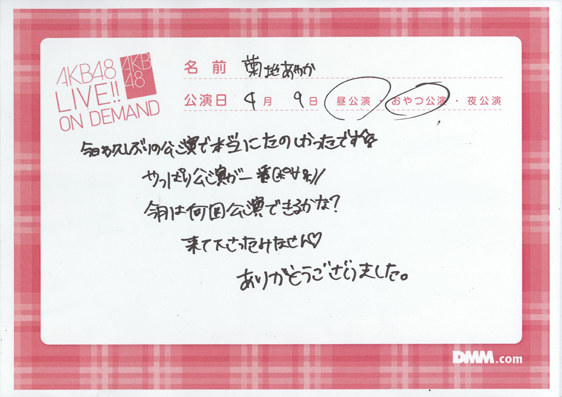 AKB48
LIVE!!
ON DEMAND
AKB
48
名前 菊地あやか
公演日 4月 9日 昼公演・おやつ公演・夜公演
今日も久しぶりの公演で本当にたのしかったです
やっぱり公演が一番
今月は何回公演できるかな?
来て下さったみなさん♡
ありがとうございました。
DMM.com